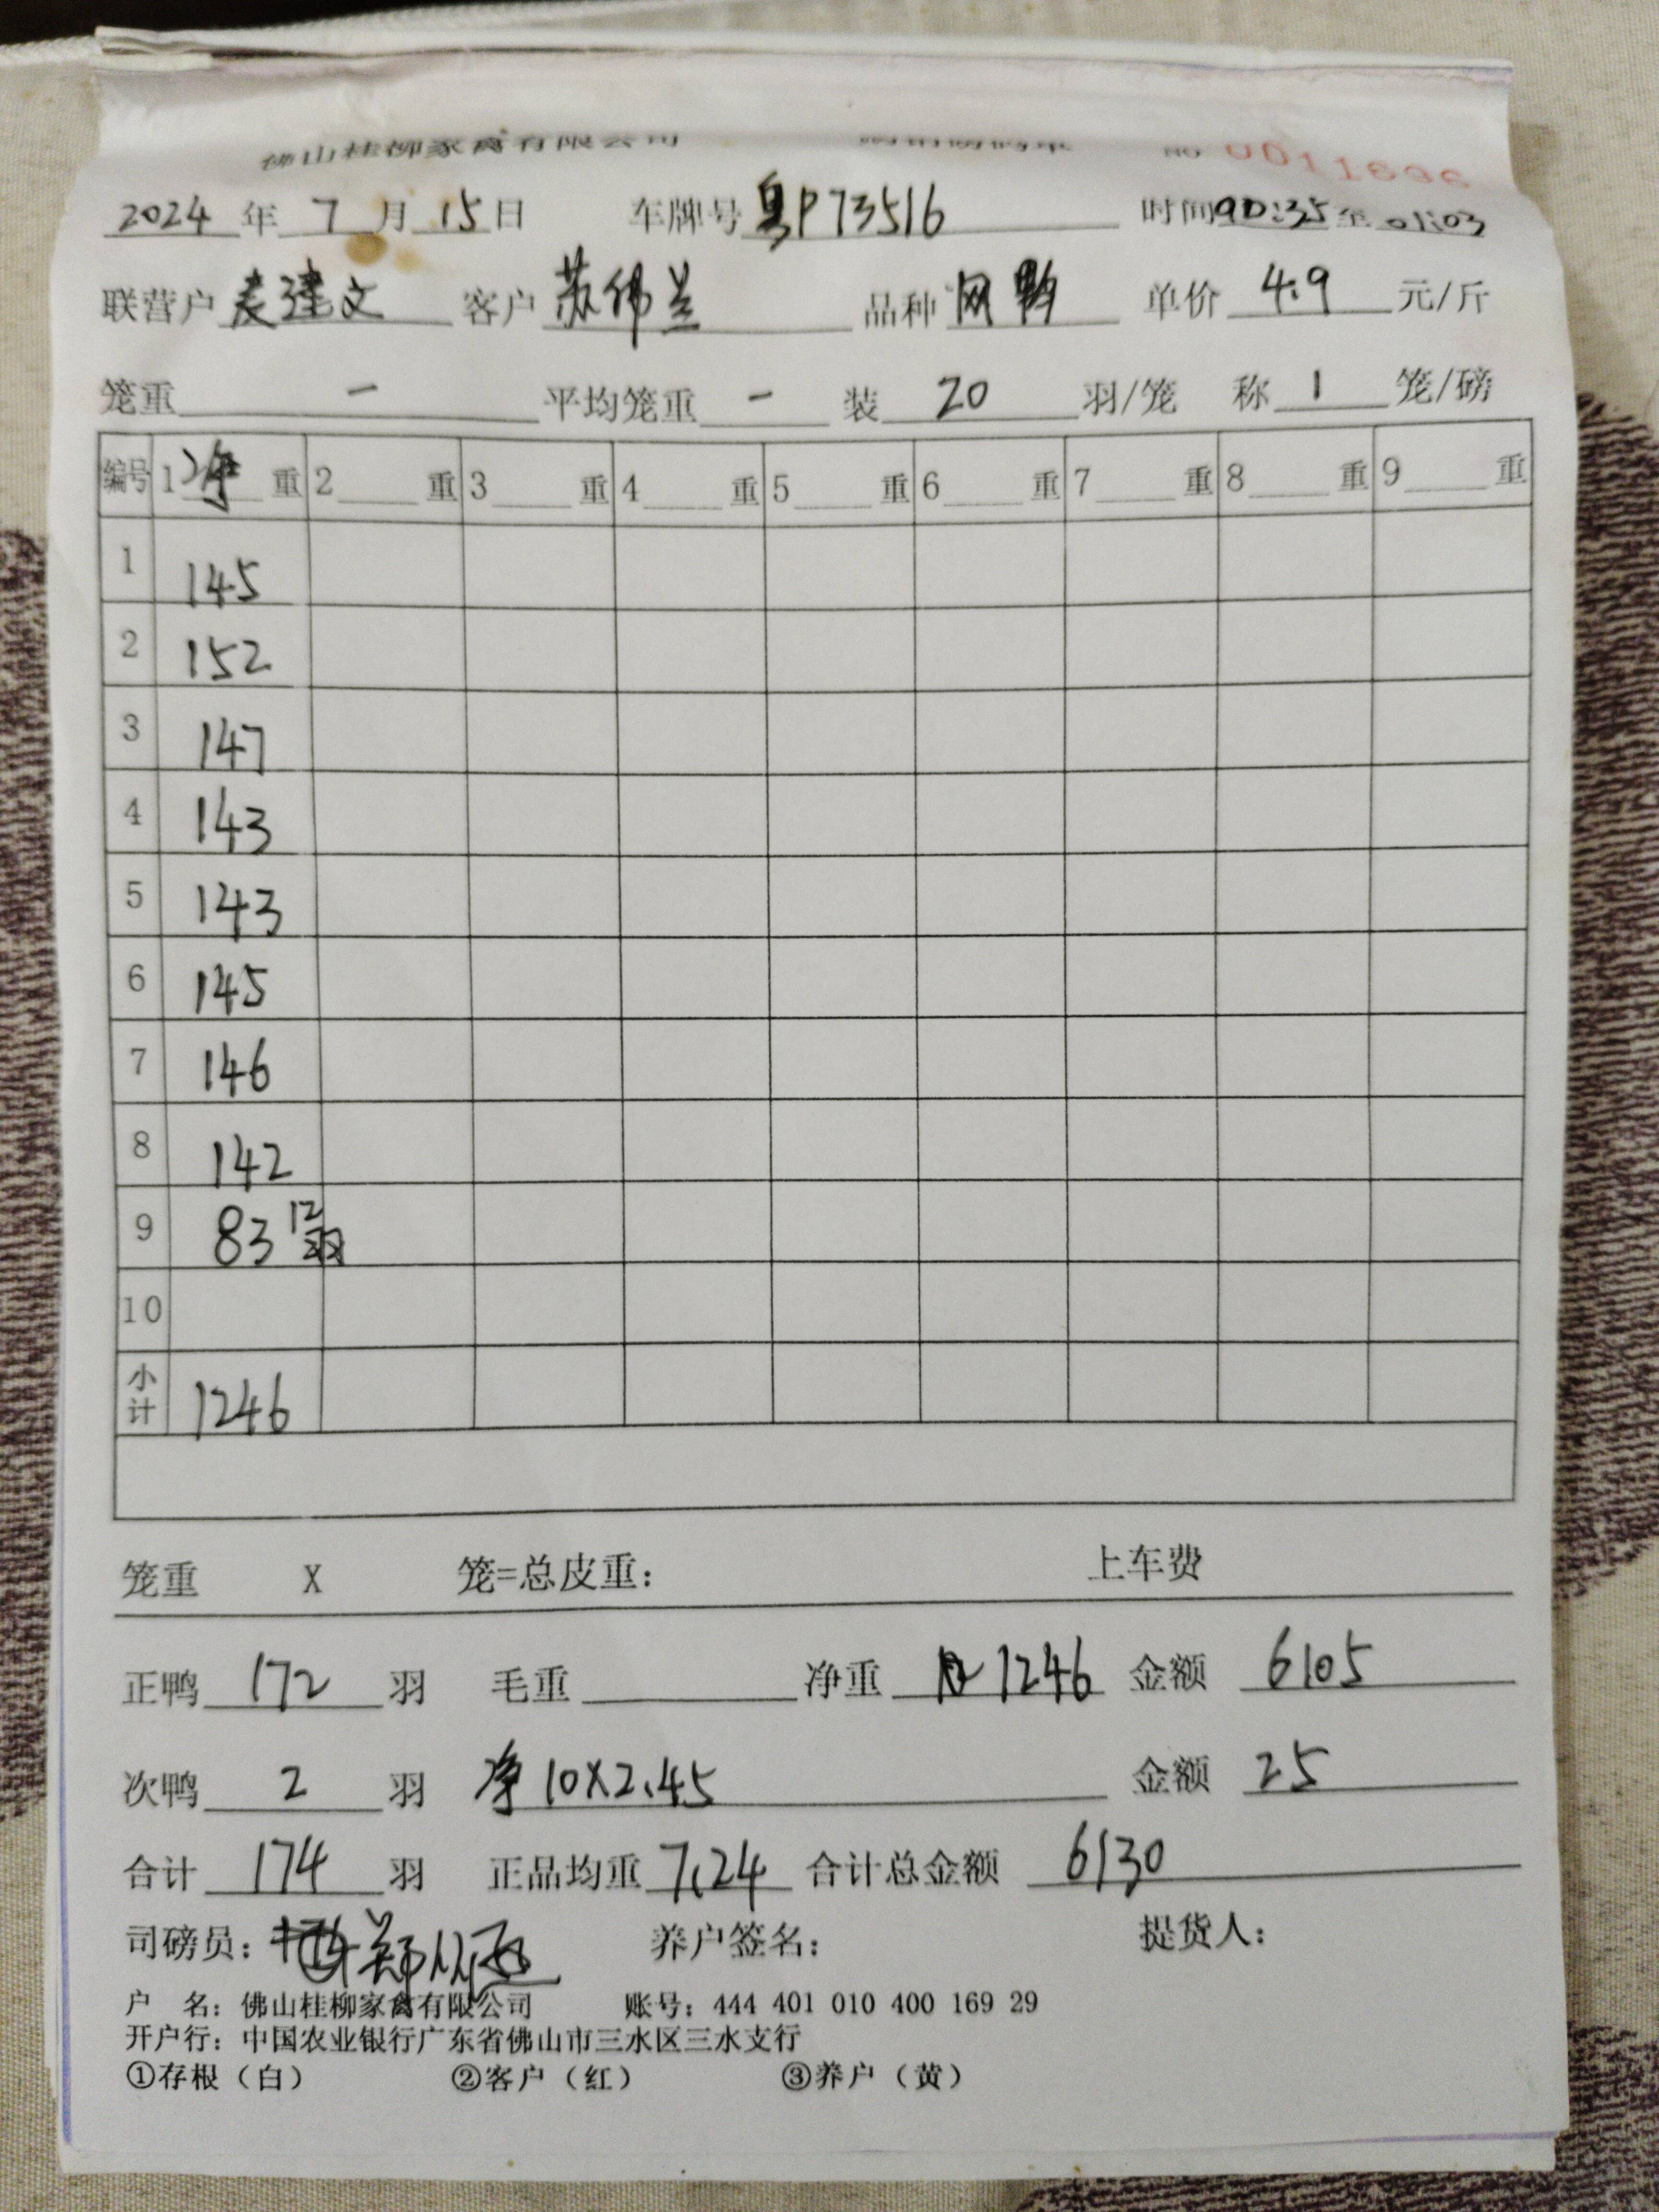 佛山桂柳家禽有限公司 No 0011696
2024 年 7 月 15 日 车牌号 粤P73516 时间 00:35 至 01:03
联营户 麦建文 客户 苏伟兰 品种 网鸭 单价 4.9 元/斤
笼重 — 平均笼重 — 装 20 羽/笼 称 1 笼/磅
编号 1 净 重 2 重 3 重 4 重 5 重 6 重 7 重 8 重 9 重
1 145
2 152
3 147
4 143
5 143
6 145
7 146
8 142
9 83 12羽
10
小计 1246
笼重 X 笼=总皮重： 上车费
正鸭 172 羽 毛重 净重 1246 金额 6105
次鸭 2 羽 净 10X2.45 金额 25
合计 174 羽 正品均重 7.24 合计总金额 6130
司磅员： 郑 养户签名： 提货人：
户 名：佛山桂柳家禽有限公司 账号：444 401 010 400 169 29
开户行：中国农业银行广东省佛山市三水区三水支行
①存根（白） ②客户（红） ③养户（黄）